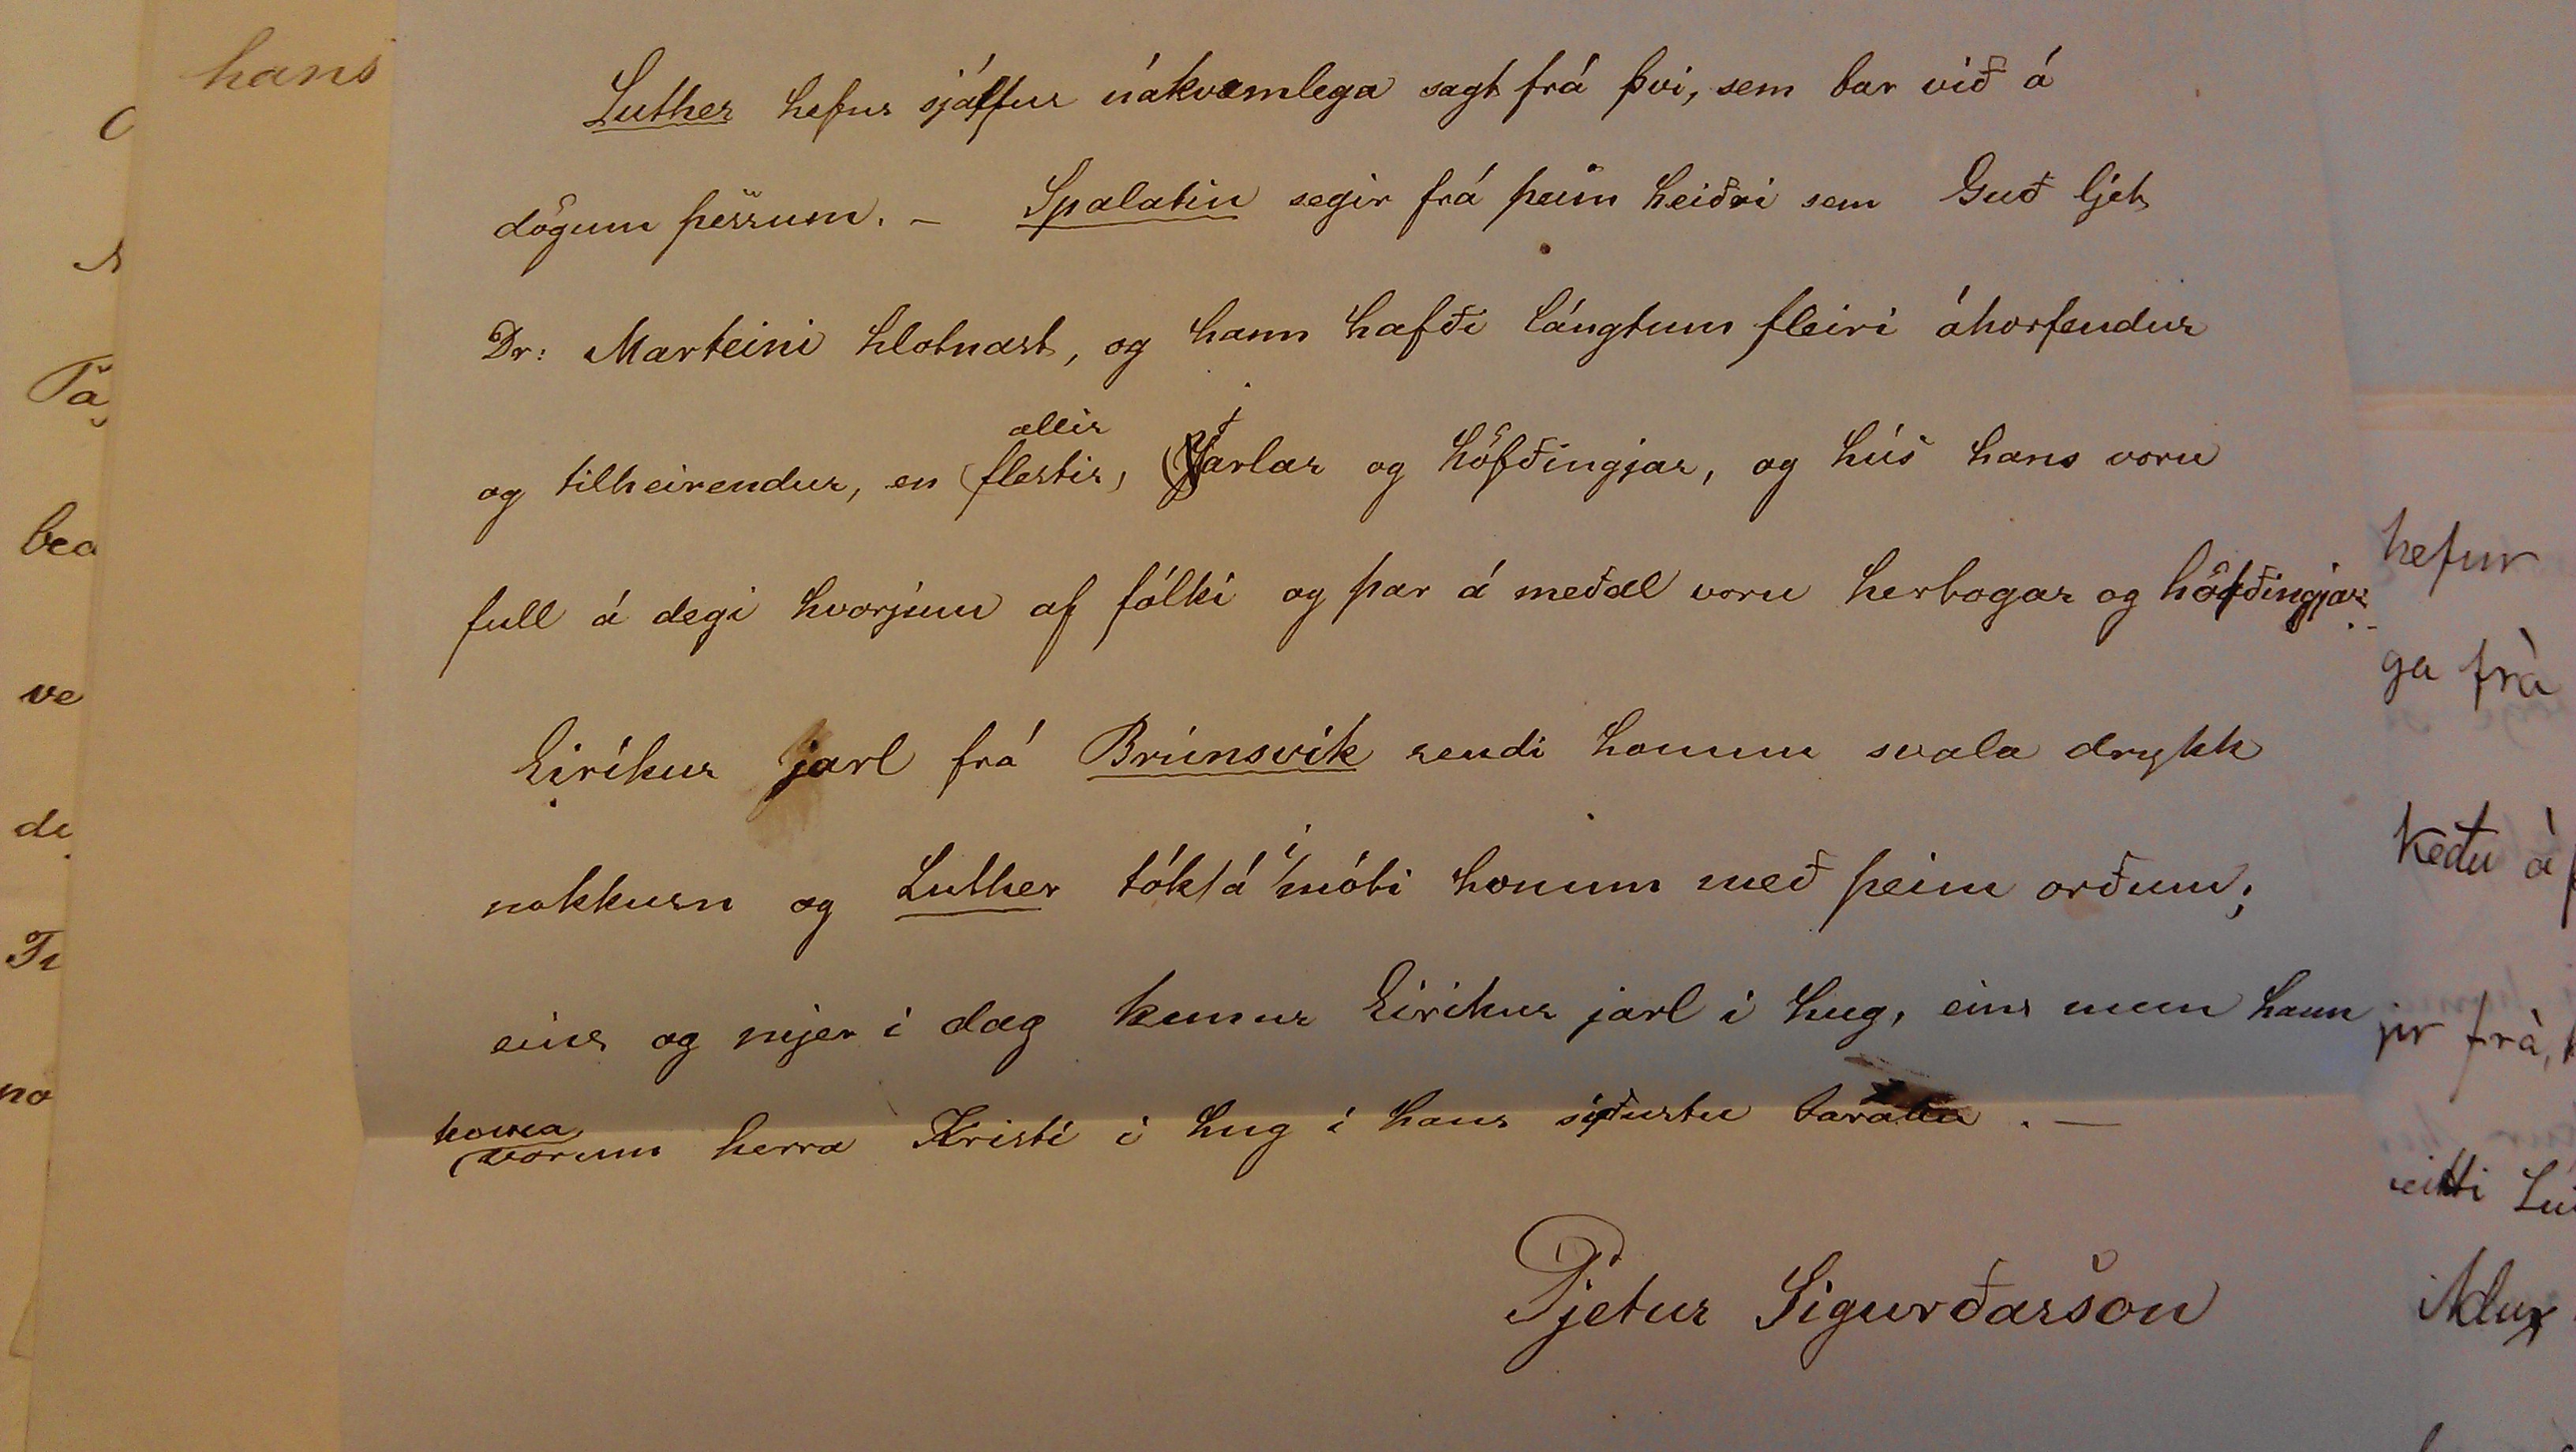 hans
Luther hefur sjálfur nákvæmlega sagt frá því, sem bar við á
dögum þessum. — Spalatin segir frá þeim heiðri sem Guð ljet
Dr: Marteini hlotnast, og hann hafði lángtum fleiri áhorfendur
allir
og tilheirendur, en (flestir) jarlar og höfðingjar, og hús hans voru
full á degi hvorjum af fólki og þar á meðal voru herbogar og höfðingjar.-
Eiríkur jarl frá Brúnsvík sendi honum svala drykk
nokkurn og Luther tók á í móti honum með þeim orðum;
eins og mjer í dag kemur Eiríkur jarl í hug, eins mun hann
koma
vorum herra Kristi í hug í hans síðustu baráttu. —
Pjetur Sigurðarson
hefur
ga frà
jr frà,